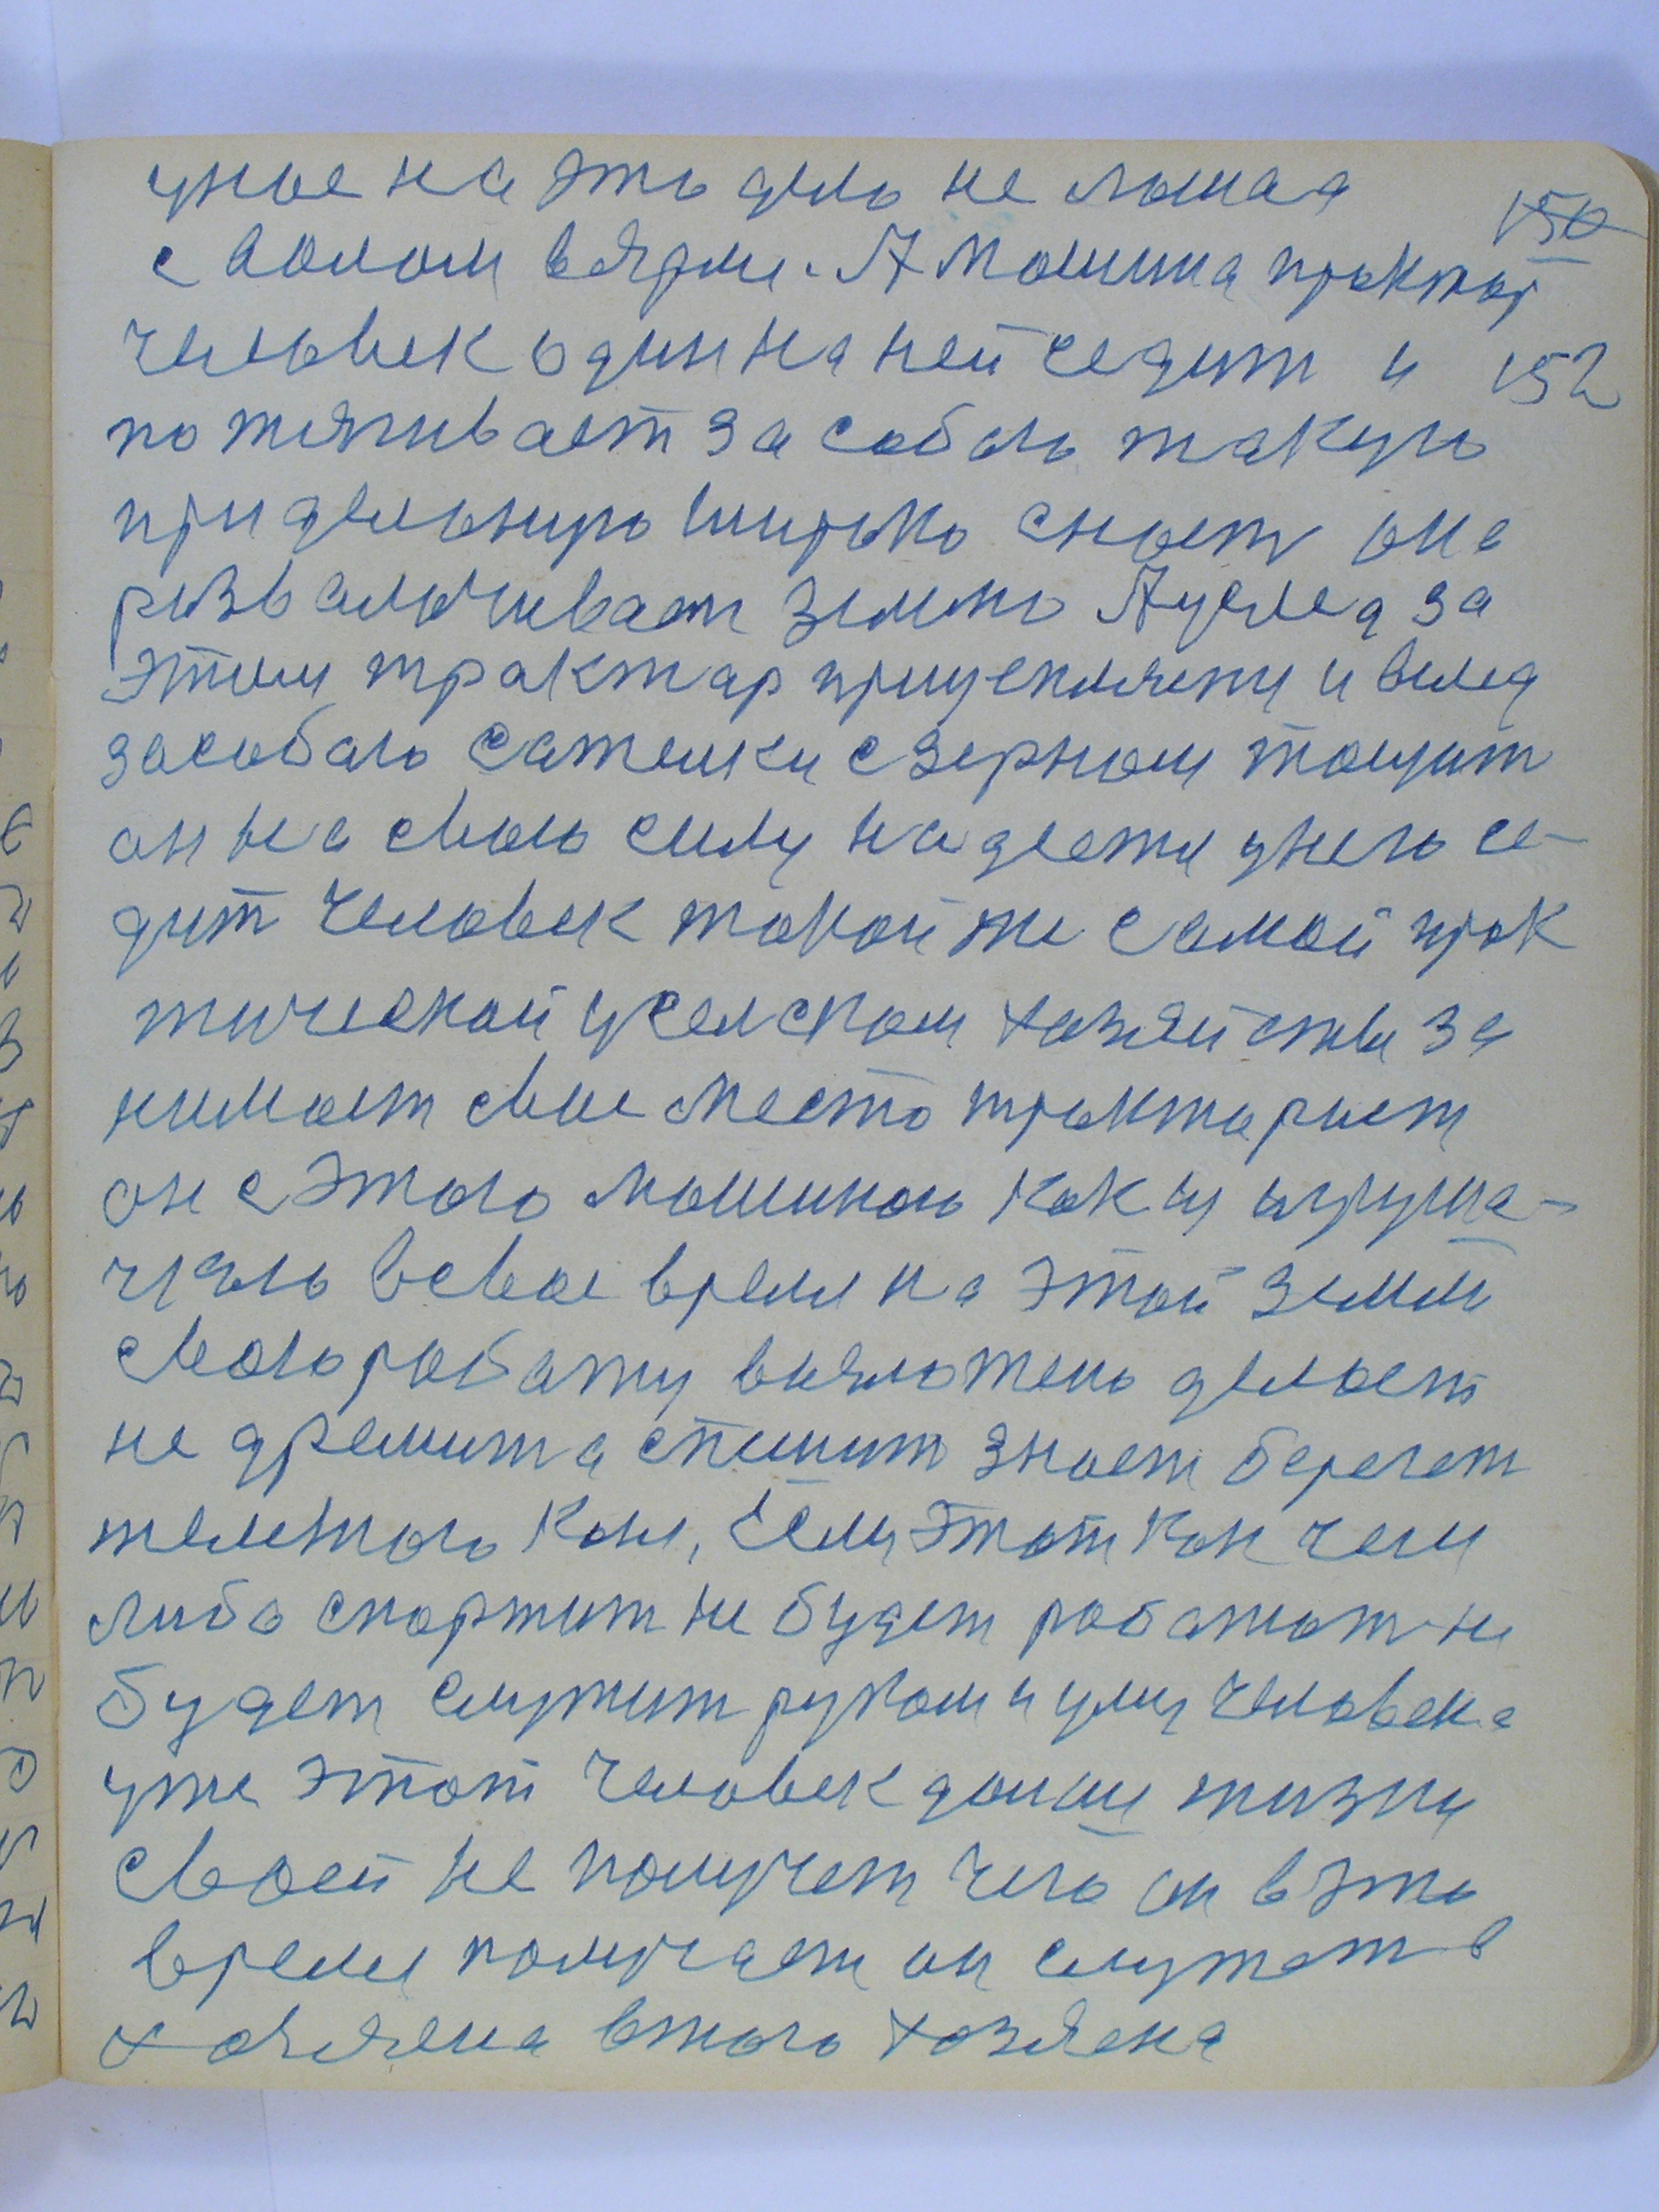 уное на это дело не лошая
с волом вярме. А машина трактор
150
человек один на ней седит и
152
потягивает за собою такую
приделоную широко снаст она
розваличивает землю А услед за
этим трактар прицепляти и вслед
засобаю сажелки сзерном тощит
он на свою силу надеети унего се-
дит человек такой же самой прак
тической уселском хазяйстви за
нимает свое место трактарист
он с этою машиною как и игруша-
чкаю всвое время на этой земли
свою работу вияложено делает
не дремит а спешит знает берегет
жележного коня, Если этот кон чем
либо спортит не будет работат не
будет служит рукам и уму человека
уже этот человек дляы жизни
своей не получет чего он вэто
время получает он служет в
хозяяена вэтого хозяена